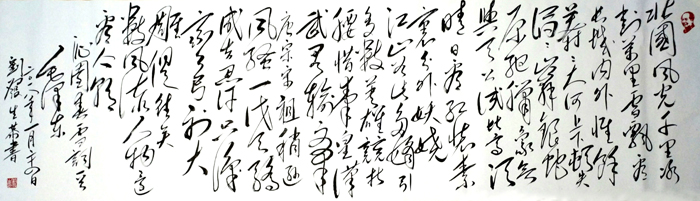 北國風光千里冰
封萬里雪飄望
長城内外惟餘
莽莽大河上下頓失
滔滔山舞銀蛇
原馳蠟象欲
與天公試比高須
晴日看紅妝素
裹分外妖嬈
江山如此多嬌引
無數英雄競折
腰惜秦皇漢
武略輸文采
唐宗宋祖稍遜
風騷一代天驕
成吉思汗只識
彎弓射大
雕俱往矣
數風流人物還
看今朝
沁園春雪詞
毛澤東
月廿四日
書